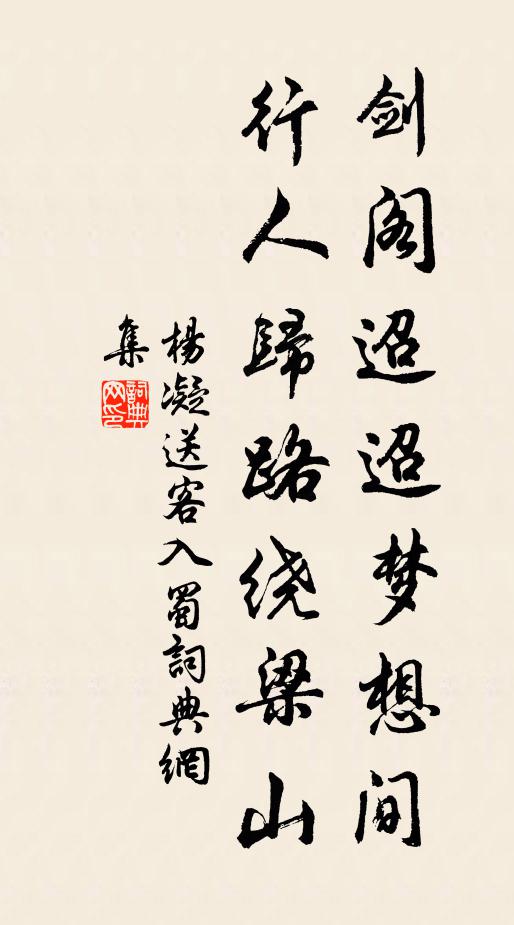 剑阁迢迢梦想间
行人歸路绕梁山
楊凝送客入蜀詞典網
集
詞典网印